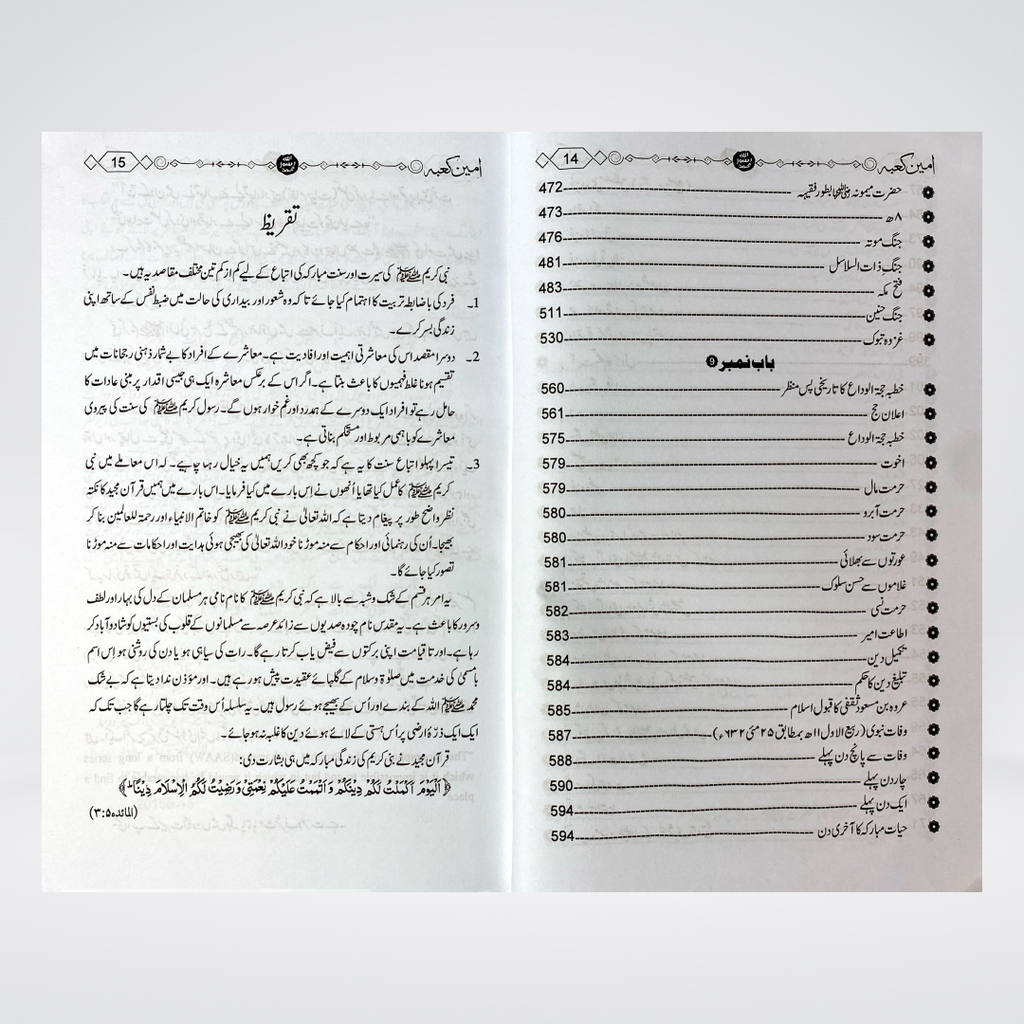 امین کعبہ
14
حضرت میمونہ رضی اللہ عنہا بطور فقیہہ 472
۸ھ 473
جنگ موتہ 476
جنگ ذات السلاسل 481
فتح مکہ 483
جنگ حنین 511
غزوہ تبوک 530
باب نمبر 9
خطبہ حجۃ الوداع کا تاریخی پس منظر 560
اعلان حج 561
خطبہ حجۃ الوداع 575
اخوت 579
حرمت مال 579
حرمت آبرو 580
حرمت سود 580
عورتوں سے بھلائی 581
غلاموں سے حسن سلوک 581
حرمت نسبی 582
اطاعت امیر 583
تکمیل دین 584
تبلیغ دین کا حکم 584
عروہ بن مسعود ثقفی کا قبول اسلام 585
وفات نبوی (ربیع الاول ۱۱ھ بمطابق ۲۵ مئی ۶۳۲ء) 587
وفات سے پانچ دن پہلے 588
چار دن پہلے 590
ایک دن پہلے 594
حیات مبارکہ کا آخری دن 594
امین کعبہ
15
تقریظ
نبی کریم ﷺ کی سیرت اور سنت مبارکہ کی اتباع کے لیے کم از کم تین مختلف مقاصد یہ ہیں۔
1۔ فرد کی باضابطہ تربیت کا اہتمام کیا جائے تاکہ وہ شعور اور بیداری کی حالت میں ضبط نفس کے ساتھ اپنی
زندگی بسر کرے۔
2۔ دوسرا مقصد اس کی معاشرتی اہمیت اور افادیت ہے۔ معاشرے کے افراد کا بے شمار ذہنی رجحانات میں
تقسیم ہونا غلط فہمیوں کا باعث بنتا ہے۔ اگر اس کے برعکس معاشرہ ایک ہی جیسی اقدار پر مبنی عادات کا
حامل رہے تو افراد ایک دوسرے کے ہمدرد اور غم خوار ہوں گے۔ رسول کریم ﷺ کی سنت کی پیروی
معاشرے کو باہمی مربوط اور مستحکم بناتی ہے۔
3۔ تیسرا پہلو اتباع سنت کا یہ ہے کہ جو کچھ بھی کریں ہمیں یہ خیال رہنا چاہیے۔ کہ اس معاملے میں نبی
کریم ﷺ کا عمل کیا تھا یا اُنھوں نے اِس بارے میں کیا فرمایا۔ اس بارے میں ہمیں قرآن مجید کا نکتہ
نظر واضح طور پر پیغام دیتا ہے کہ اللہ تعالیٰ نے نبی کریم ﷺ کو خاتم الانبیاء اور رحمۃ للعالمین بنا کر
بھیجا۔ اُن کی رہنمائی اور احکام سے منہ موڑنا خود اللہ تعالیٰ کی بھیجی ہوئی ہدایت اور احکامات سے منہ موڑنا
تصور کیا جائے گا۔
یہ امر ہر قسم کے شک و شبہ سے بالا ہے کہ نبی کریم ﷺ کا نام نامی ہر مسلمان کے دل کی بہار اور لطف
و سرور کا باعث ہے۔ یہ مقدس نام چودہ صدیوں سے زائد عرصہ سے مسلمانوں کے قلوب کی بستیوں کو شاد و آباد کر
رہا ہے۔ اور تا قیامت اپنی برکتوں سے فیض یاب کرتا رہے گا۔ رات کی سیاہی ہو یا دن کی روشنی ہو اِس اسم
بامسمیٰ کی خدمت میں صلوٰۃ و سلام کے گلہائے عقیدت پیش ہو رہے ہیں۔ اور مؤذن ندا دیتا ہے کہ بے شک
محمد ﷺ اللہ کے بندے اور اُس کے بھیجے ہوئے رسول ہیں۔ یہ سلسلہ اُس وقت تک چلتا رہے گا جب تک کہ
ایک ایک ذرّہ ارضی پر اُس ہستی کے لائے ہوئے دین کا غلبہ نہ ہو جائے۔
قرآن مجید نے بنی کریم کی زندگی مبارکہ میں ہی بشارت دی:
﴿اَلْيَوْمَ اَكْمَلْتُ لَكُمْ دِيْنَكُمْ وَ اَتْمَمْتُ عَلَيْكُمْ نِعْمَتِيْ وَ رَضِيْتُ لَكُمُ الْاِسْلَامَ دِيْنًا﴾
(المائدہ ۳:۵)